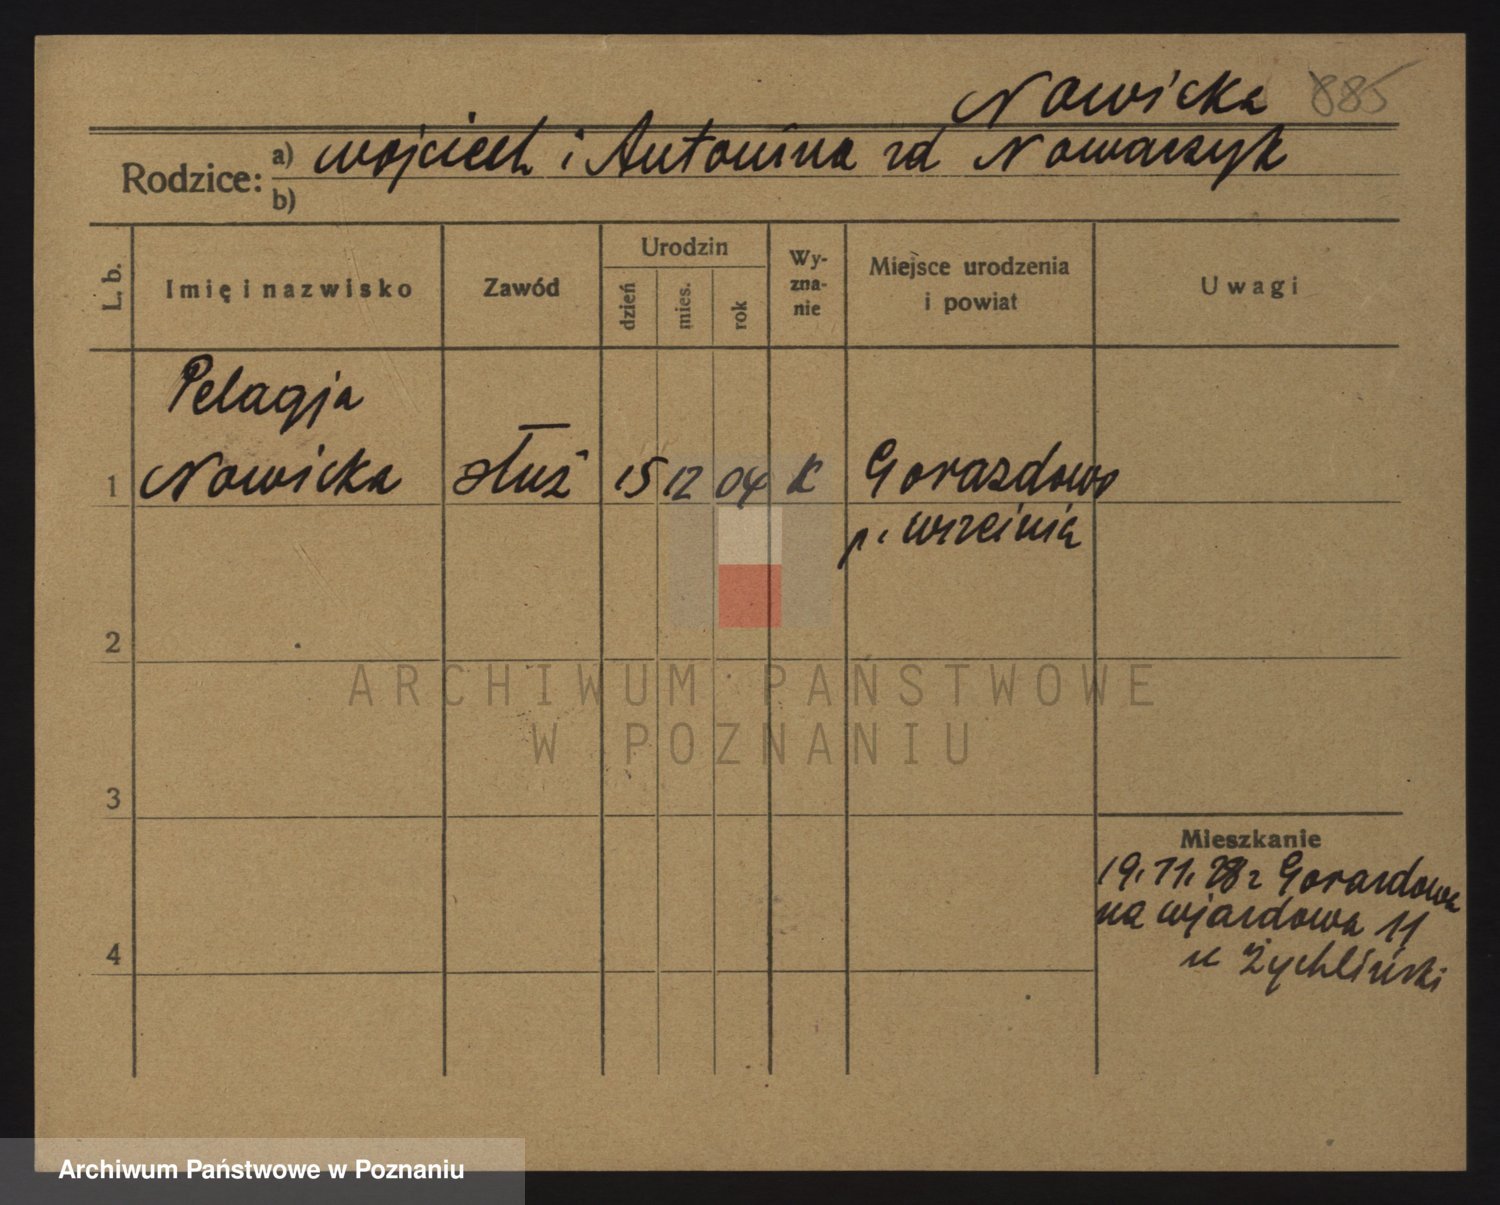 Nowicka 885
Rodzice: a) Wojciech i Antonina zd Nowaczyk
b)
L. b.
Imię i nazwisko
Zawód
Urodzin
dzień
mies.
rok
Wy-
zna-
nie
Miejsce urodzenia
i powiat
Uwagi
Pelagja
1 Nowicka służ 15 12 04 K Gorazdowo
p. Września
2
ARCHIWUM PAŃSTWOWE
W POZNANIU
3
Mieszkanie
19.11.28 z Gorazdowa
na Wjazdowa 11
u Żychliński
4
Archiwum Państwowe w Poznaniu